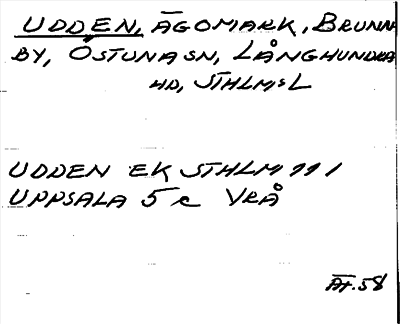 UDDEN, ÄGOMARK, BRUNNA
BY, ÖSTUNA SN, LÅNGHUNDRA
HD, STHLMS L
UDDEN EK STHLM 99 1
UPPSALA 5 c VRÅ
ÄF.58